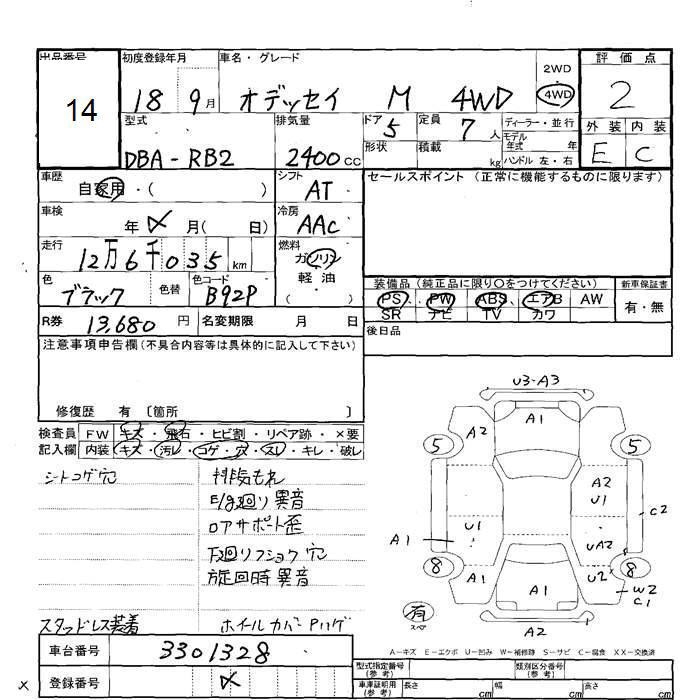 出品番号 初度登録年月 車名・グレード 評価点
14 18 9月 オデッセイ M 4WD 2WD 4WD 2
型式 排気量 ドア 5 定員 7人 ディーラー・並行 外装 内装
DBA-RB2 2400cc 形状 積載 kg モデル年式 年 E C
ハンドル 左・右
車歴 自家用・( ) シフト AT セールスポイント(正常に機能するものに限ります)
車検 年 月( 日) 冷房 AAC
走行 12万6千035km 燃料 ガソリン 軽油 ( )
色 ブラック 色替 色コード B92P
装備品(純正品に限り〇をつけてください) 新車保証書
PS PW ABS エアB AW 有・無
SR ナビ TV カワ
R券 13,680円 名変期限 月 日 後日品
注意事項申告欄(不具合内容等は具体的に記入して下さい)
修復歴 有 〔箇所 〕
検査員 FW キズ・飛石・ヒビ割・リペア跡・×要
記入欄 内装 キズ・汚レ・コゲ・穴・スレ・キレ・破レ
シートコゲ穴 排気もれ
E/g廻り異音
ロアサポート歪
下廻りフショク穴
旋回時異音
スタッドレス装着 ホイルカバーPハゲ
U3-A3
A1
A2
5 5
A2
U1
C2
A1 U1
UA2
8 8
A1 A1 U2
W2
C1
有
スペア
A2
A-キズ E-エクボ U-凹み W-補修跡 S-サビ C-腐食 XX-交換済
車台番号 3301328
型式指定番号(参考) 類別区分番号(参考)
× 登録番号
車庫証明用(参考) 長さ cm 幅 cm 高さ cm